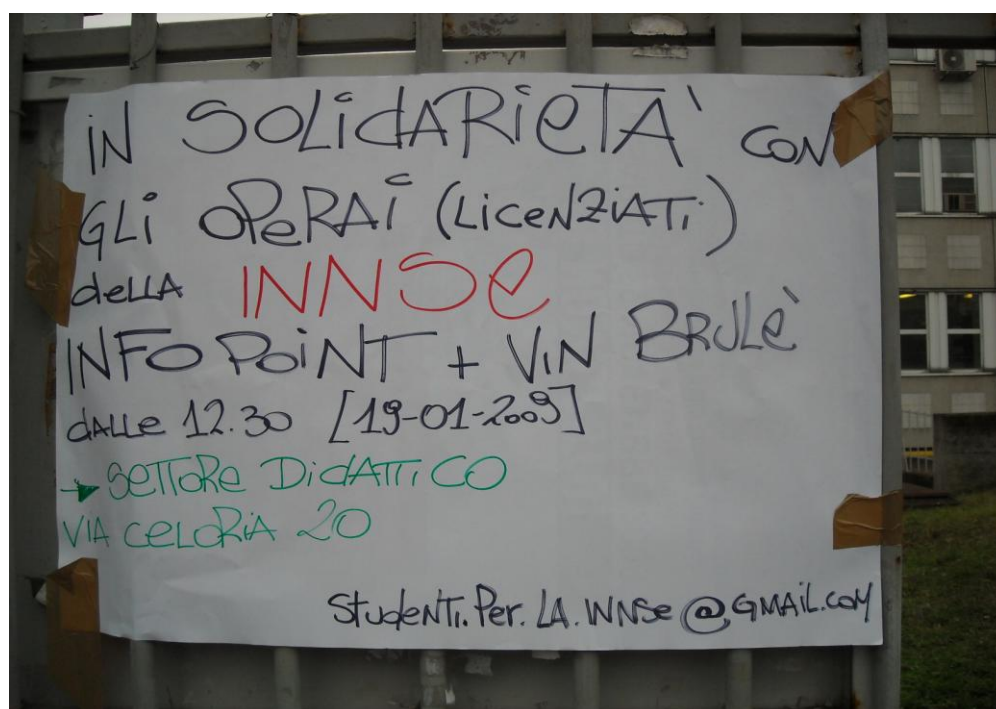 iN SOLidARieTA' CON
GLi OPeRAi (LiceNZiATi)
deLLA INNSe
INFO POiNT + ViN BRULe'
dALLe 12.30 [19-01-2009]
→ SeTTORe DidATTiCO
VIA CeLORiA 20
StudeNTi.Per.LA.INNSe@GMAiL.com